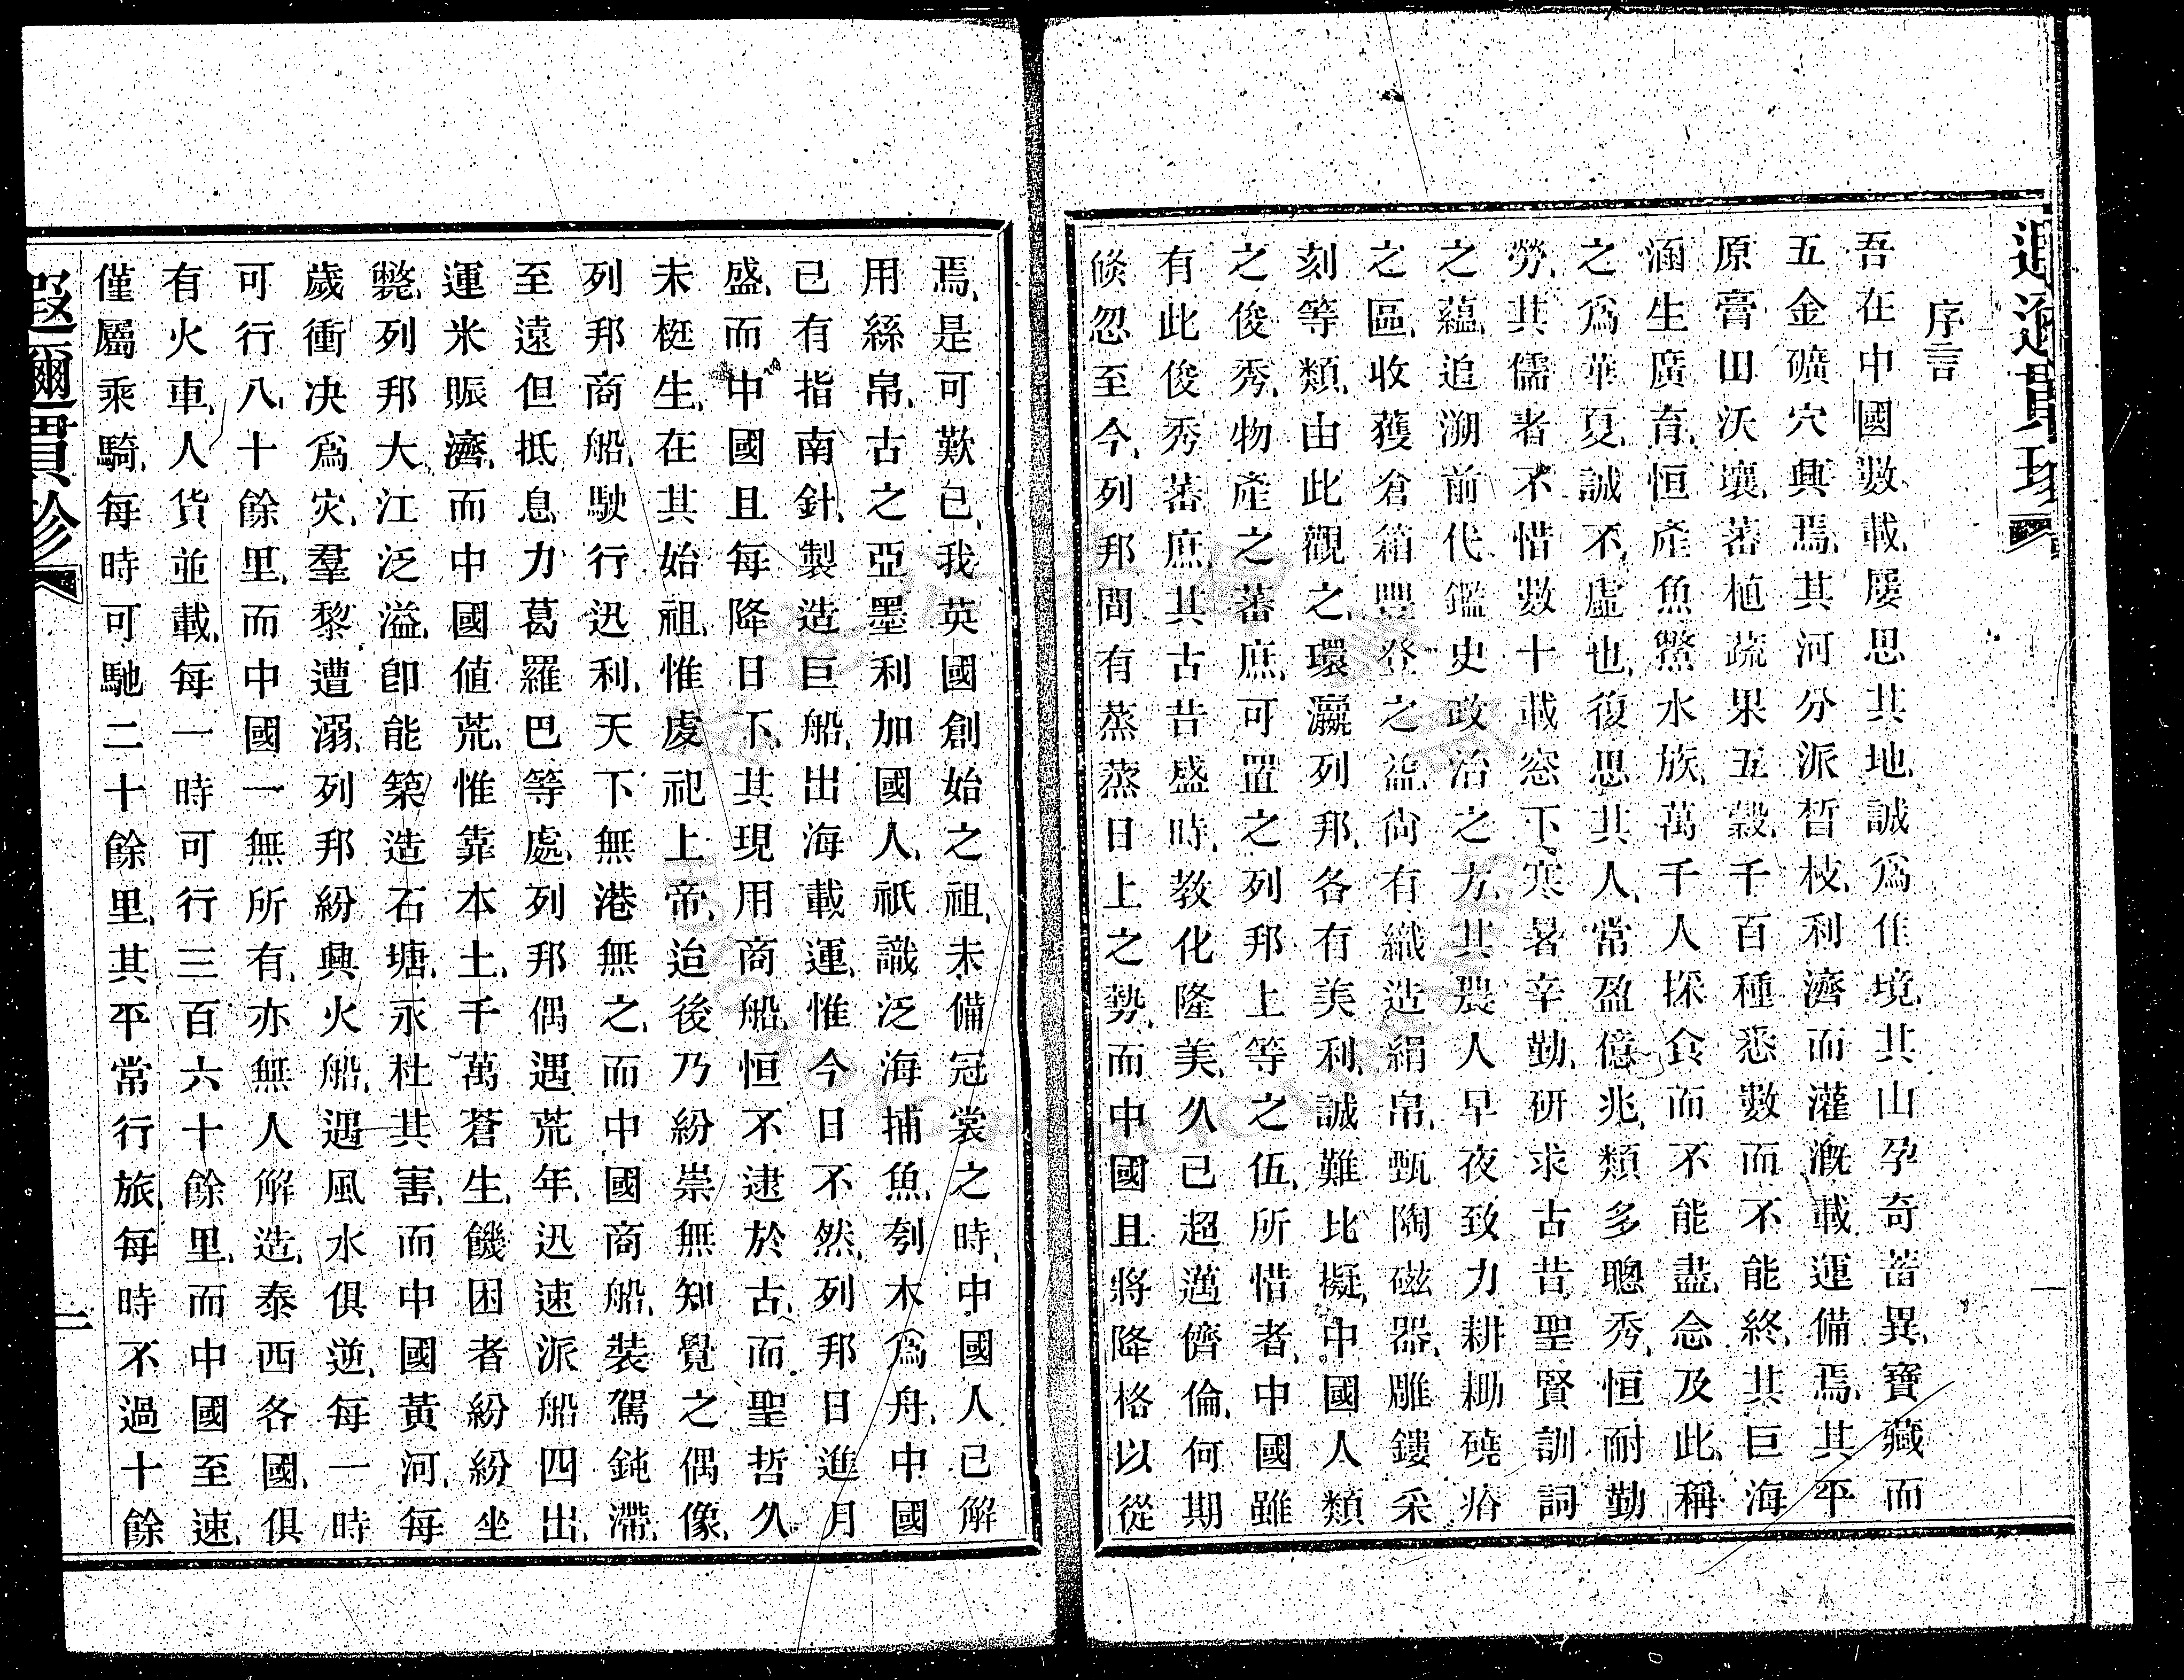 遐邇貫珍
一
序言
吾在中國數載、屢思其地、誠爲佳境、其山孕奇蓄異、寶藏而
五金礦穴興焉、其河分派晳枝、利濟而灌漑載運備焉、其平
原膏田沃壤、蕃植蔬果五穀、千百種悉數而不能終、其巨海
涵生廣育、恒產魚鱉水族、萬千人採食而不能盡、念及此、稱
之爲華夏、誠不虛也、復思其人、常盈億兆、類多聰秀、恒耐勤
勞、其儒者不惜數十載窓下寒暑辛勤、研求古昔聖賢訓詞
之蘊、追溯前代鑑史政治之方、其農人早夜致力耕耡磽瘠
之區、收獲倉箱豐登之益、尙有織造絹帛、甄陶磁器、雕鏤采
刻等類、由此觀之、環瀛列邦、各有美利、誠難比擬、中國人類
之俊秀、物產之蕃庶、可置之列邦上等之伍、所惜者、中國雖
有此俊秀蕃庶、其古昔盛時、敎化隆美、久已超邁儕倫、何期
倐忽至今、列邦間有蒸蒸日上之勢、而中國且將降格以從
焉、是可歎已、我英國創始之祖、未備冠裳之時、中國人已解
用絲帛、古之亞墨利加國人、祇識泛海捕魚、刳木爲舟、中國
已有指南針、製造巨船、出海載運、惟今日不然、列邦日進月
盛、而中國且每降日下、其現用商船、恒不逮於古、而聖哲久
未梃生、在其始祖、惟虔祀上帝、迨後乃紛崇無知覺之偶像、
列邦商船、駛行迅利、天下無港無之、而中國商船、裝駕鈍滯、
至遠但抵息力葛羅巴等處、列邦偶遇荒年、迅速派船四出、
運米賑濟、而中國値荒、惟靠本土、千萬蒼生、饑困者紛紛坐
斃、列邦大江泛溢、卽能築造石塘、永杜其害、而中國黃河、每
歲衝決爲灾、羣黎遭溺、列邦紛興火船、遇風水俱逆、每一時
可行八十餘里、而中國一無所有、亦無人解造、泰西各國、俱
有火車、人貨並載、每一時可行三百六十餘里、而中國至速、
僅屬乘騎、每時可馳二十餘里、其平常行旅、每時不過十餘
遐邇貫珍
二